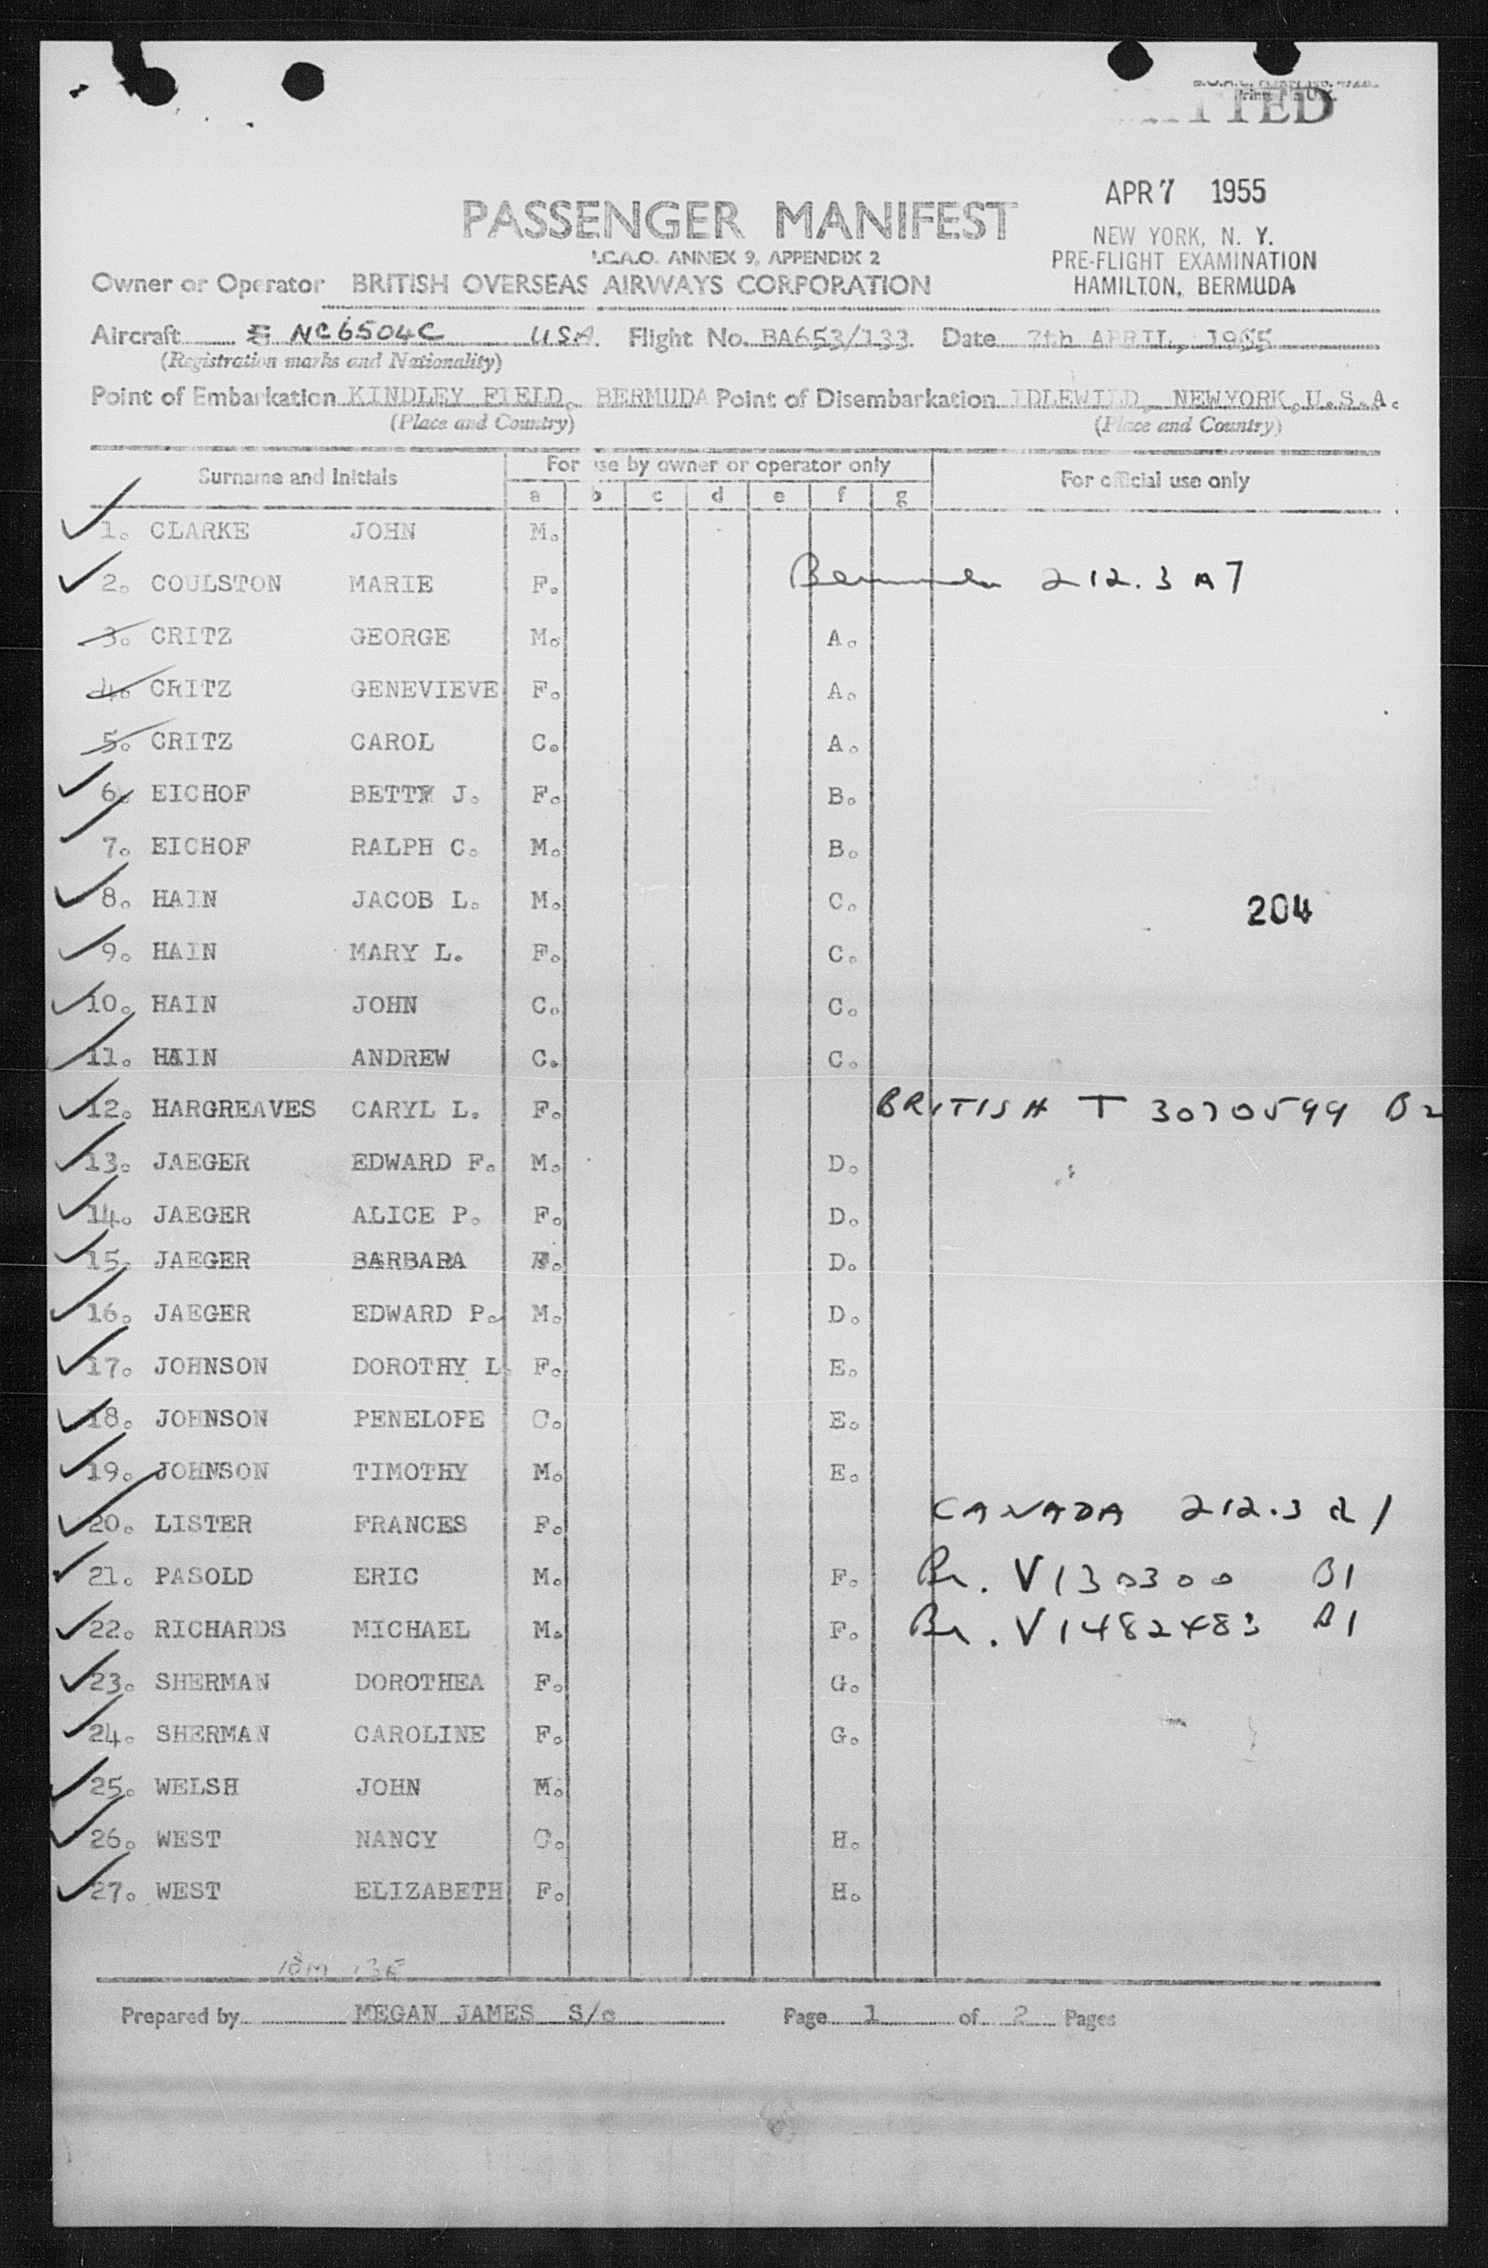 APR 7 1955
NEW YORK, N. Y.
PRE-FLIGHT EXAMINATION
HAMILTON, BERMUDA
PASSENGER MANIFEST
I.C.A.O. ANNEX 9, APPENDIX 2
Owner or Operator BRITISH OVERSEAS AIRWAYS CORPORATION
Aircraft NC6504C USA. Flight No. BA653/133. Date 7th APRIL, 1955
(Registration marks and Nationality)
Point of Embarkation KINDLEY FIELD, BERMUDA Point of Disembarkation IDLEWILD, NEWYORK,U.S.A.
(Place and Country) (Place and Country)
Surname and Initials For use by owner or operator only For official use only
a b c d e f g
1. CLARKE JOHN M.
2. COULSTON MARIE F. Bermuda 212.3 A7
3. CRITZ GEORGE M. A.
4. CRITZ GENEVIEVE F. A.
5. CRITZ CAROL C. A.
6. EICHOF BETTY J. F. B.
7. EICHOF RALPH C. M. B.
8. HAIN JACOB L. M. C.
204
9. HAIN MARY L. F. C.
10. HAIN JOHN C. C.
11. HAIN ANDREW C. C.
12. HARGREAVES CARYL L. F. BRITISH T 3070599 B2
13. JAEGER EDWARD F. M. D.
14. JAEGER ALICE P. F. D.
15. JAEGER BARBARA F. D.
16. JAEGER EDWARD P. M. D.
17. JOHNSON DOROTHY L. F. E.
18. JOHNSON PENELOPE C. E.
19. JOHNSON TIMOTHY M. E.
20. LISTER FRANCES F. CANADA 212.3 a1
21. PASOLD ERIC M. F. Br. V130300 B1
22. RICHARDS MICHAEL M. F. Br. V1482483 B1
23. SHERMAN DOROTHEA F. G.
24. SHERMAN CAROLINE F. G.
25. WELSH JOHN M.
26. WEST NANCY C. H.
27. WEST ELIZABETH F. H.
Prepared by MEGAN JAMES S/c Page 1 of 2 Pages